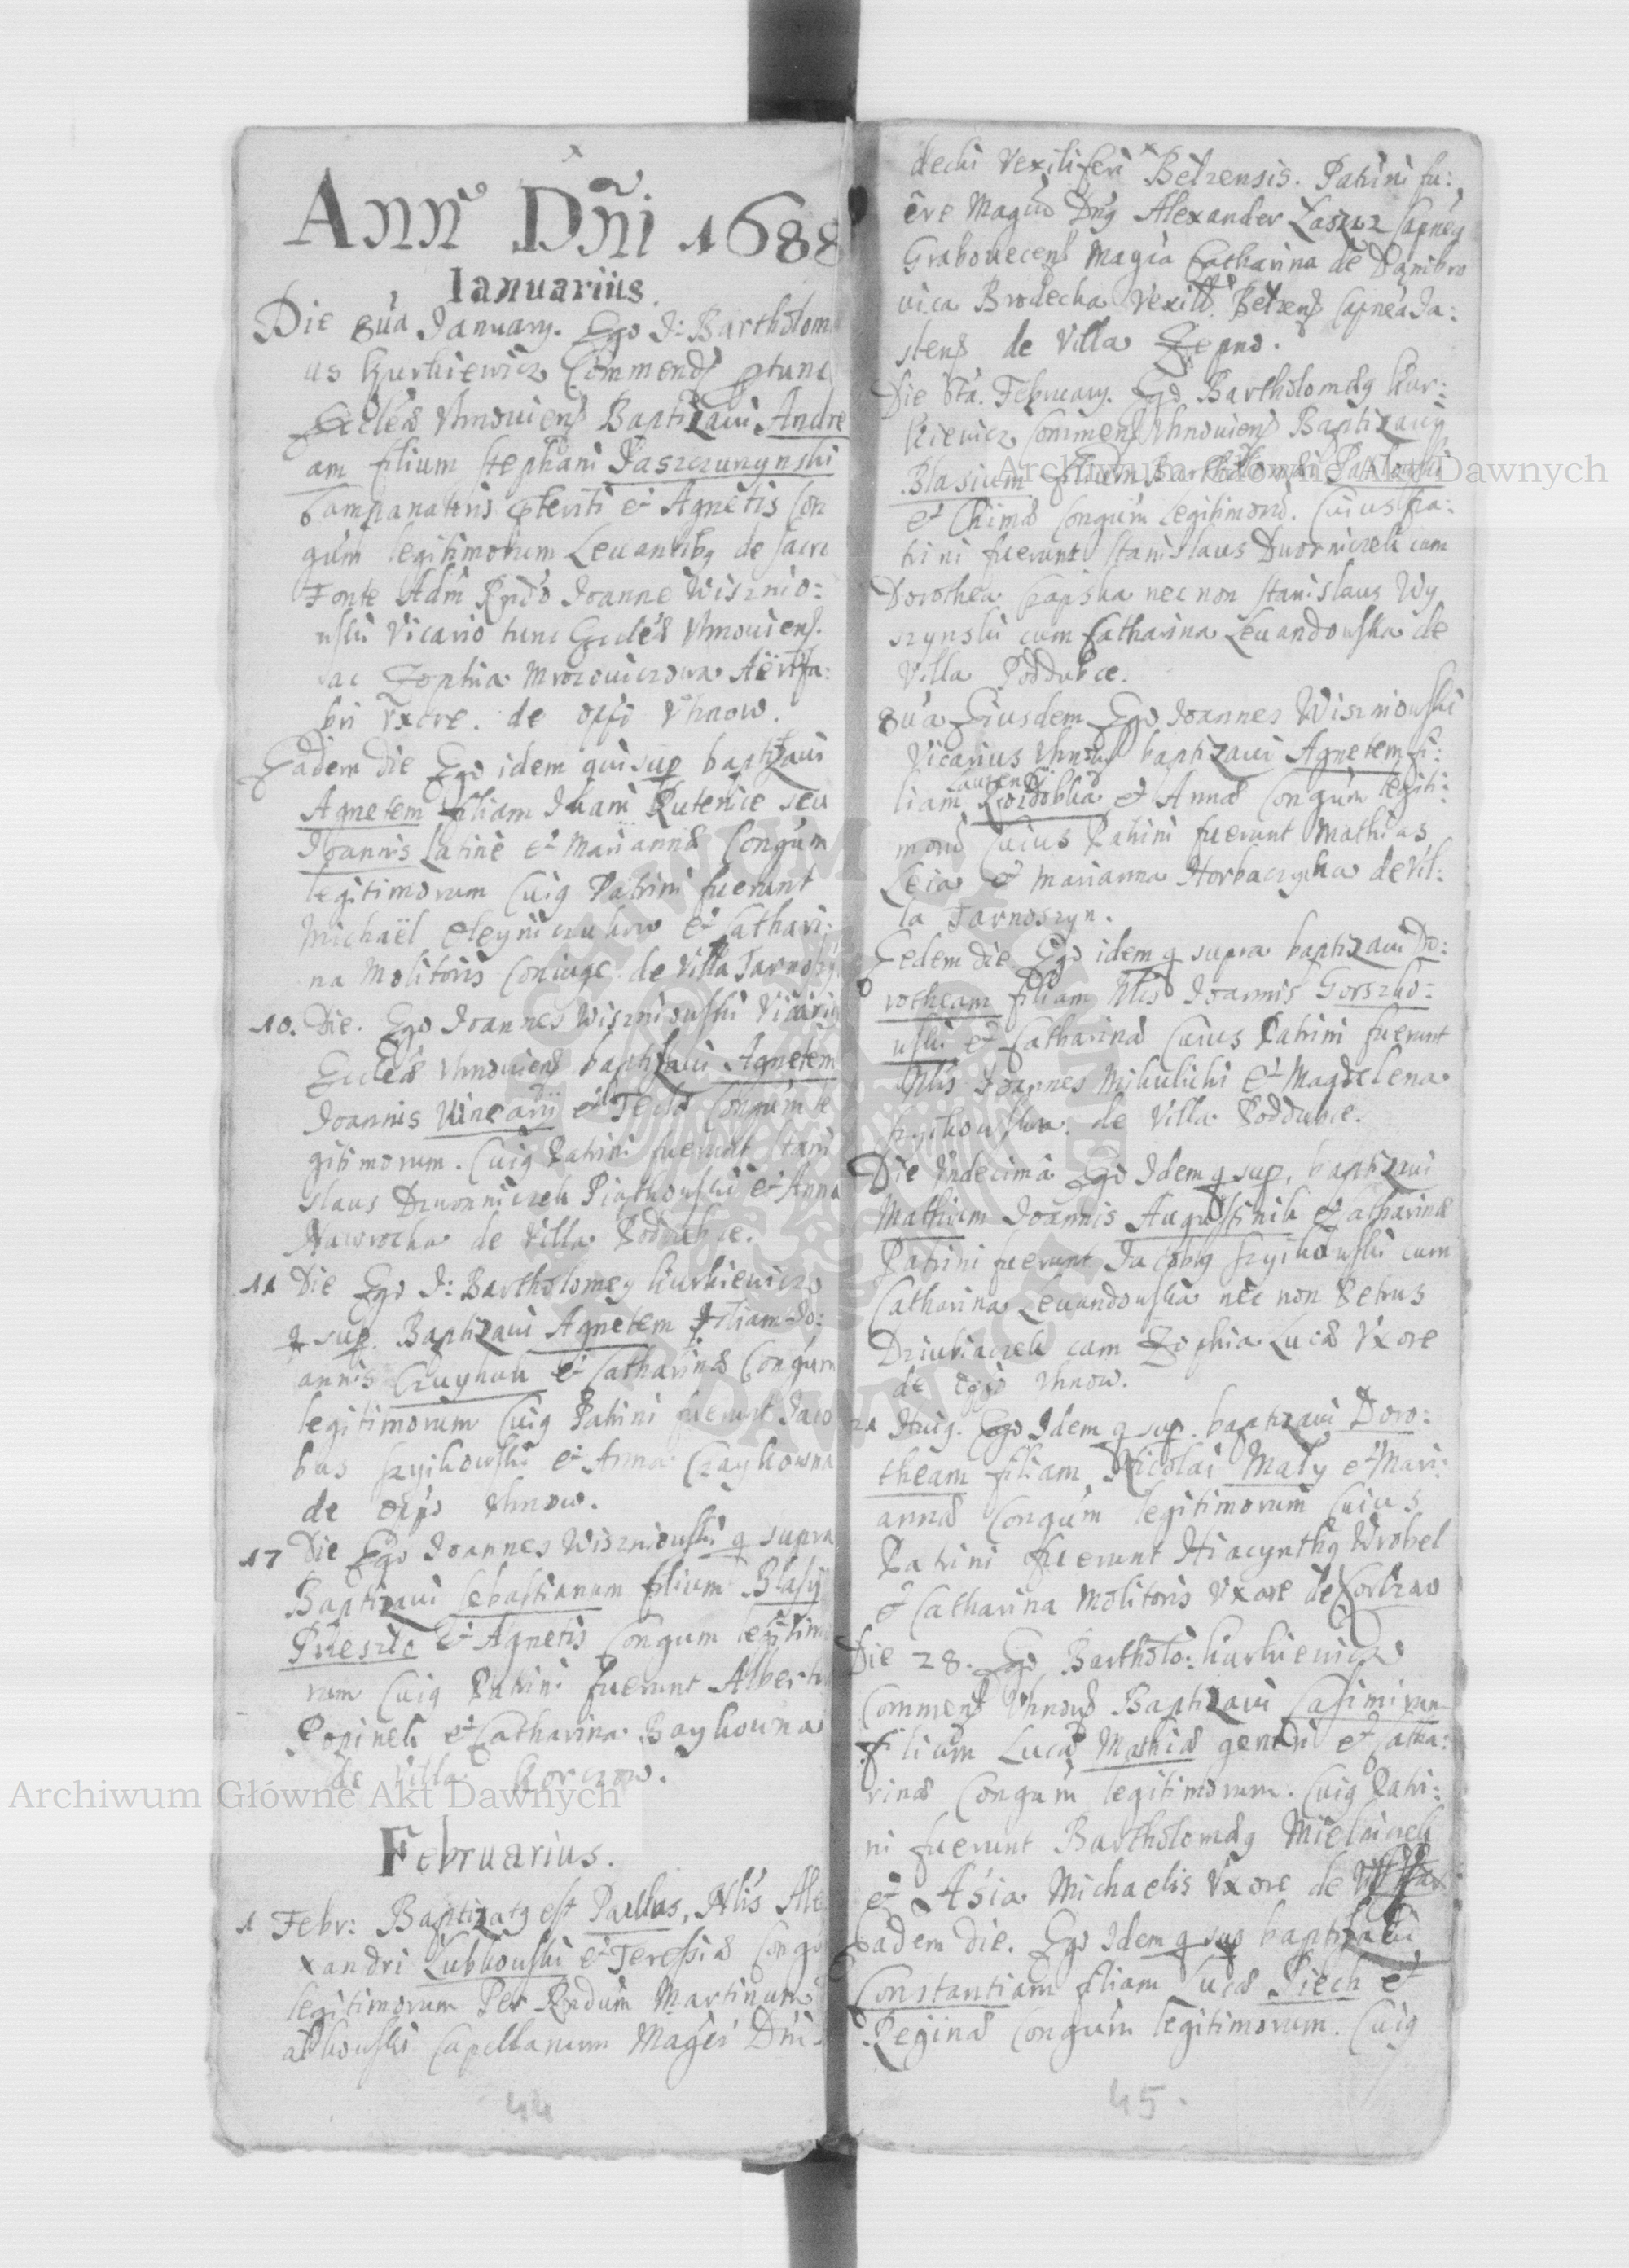 Ann° Dñi 1688
Ianuariis.
Die 8ua January. Ego J: Bartholomæ
us Kurkiewicz Commends ptunc
Eccleæ Vhnoviens Baptizavi Andre
am filium Stephani Jaszczurzynski
Campanatoris et Agnetis Con
gum legitimorum Levantibq de sacro
Fonte Adm Rndo Joanne Wisznio:
wski Vicario tunc Eccleæ Vhnoviens.
ac Zophia Mrozowiczowa
bri Vxore. de Oppi Vhnow.
Eadem die Ego idem qui sup baptizavi
Agnetem filiam Ihani Rutenice seu
Joannis Latine et Mariannæ Congum
legitimorum Cuig Patrini fuerunt
Michaël Oleyniczukow et Cathari:
na Molitoris Coniuge de villa Tarnosz
10. Die. Ego Joannes Wiszniowski Vicarig
Eccleæ Vhnoviens baptizavi Agnetem
Joannis Vinearij et Teclæ Congum le
gitimorum. Cuig Patrini fuerunt Stani
slaus Dzwonniczek Piatkowski et Anna
Nawrocka de Villa Poddubce.
11 Die Ego J: Bartholomeg Kurkiewicz
q sup. Baptizavi Agnetem filiam Jo:
annis Czuykuk et Catharinæ Congum
legitimorum Cuig Patrini fuerunt Jaco
bus Szyikowski et Anna Czaykowna
de Oppo Vhnow.
17 Die Ego Joannes Wiszniowski q supra
Baptizavi Sebastianum filium Blasij
et Agnetis Congum legitimo
rum Cuig Patrini fuerunt Albert
Popinek et Catharina Baykowna
de villa Korczow.
Februarius.
1 Febr: Baptizatg est Paulus, Nlis Ale
xandri Lubkowski et Teressiæ Congu
legitimorum Per Rndum Martinum
Capellanum Magci Dni
44
decki Vexiliferi Belzensis. Patrini fu:
ere Magcus Dng Alexander Laszcz Capneg
Grabovecens Magca Catharina de Dąmbro
vica Brodecka Vexilla. Belzens Capnea Ja:
slens de Villa Rzepno.
Die 6ta. February. Ego Bartholomæg Kur:
kiewicz Commens Vhnoviens Baptizavi
Blasium filium Bartholomæi Pawlowski
et Chimæ Congum legitimorum. Cuius Pa:
trini fuerunt Stanislaus Dworniczek cum
Dorothea Czapska nec non Stanislaus Wy
szynski cum Catharina Levandowska de
Villa Poddubce.
8ua Eiusdem Ego Joannes Wiszniowski
Vicarius Vhnows baptizavi Agnetem fi:
Laurentij
liam Rozdobka et Annæ Congum legiti:
morum Cuius Patrini fuerunt Mathias
Leia et Marianna Horbaczycka de Vil:
la Tarnoszyn.
Eedem die Ego idem q supra baptizavi Do:
rotheam filiam Nlis Joannis Gorszko:
wski et Catharinæ Cuius Patrini fuerunt
Nlis Joannes Mikulicki et Magdalena
Szyikowska de Villa Poddubce.
Die Vndecima Ego Idem q sup. baptizavi
Mathiam Joannis Augustinik et Catharinæ
Patrini fuerunt Jacobg Szyikowski cum
Catharina Levandowska nec non Petrus
Dziubiaczek cum Zophia Lucæ Vxore
de Oppo Vhnow.
21 Huig. Ego Idem q sup. baptizavi Doro:
theam filiam Nicolai Maly et Mari:
annæ Congum legitimorum Cuius
Patrini fuerunt Hiacynthg Wrobel
et Catharina Molitoris Vxore de Korczow
Die 28. Ego Bartholo: Kurkiewicz
Commens Vhnows Baptizavi Casimirum
filium Lucæ Mathiæ generi et Catha:
rinæ Congum legitimorum. Cuig Patri:
ni fuerunt Bartholomæg Mielniczek
et Asia Michaelis Vxore de
Eadem die. Ego Idem q sup baptizavi
Constantiam filiam Lucæ Piech et
Reginæ Congum legitimorum. Cuig
45.
Archiwum Główne Akt Dawnych
Archiwum Główne Akt Dawnych